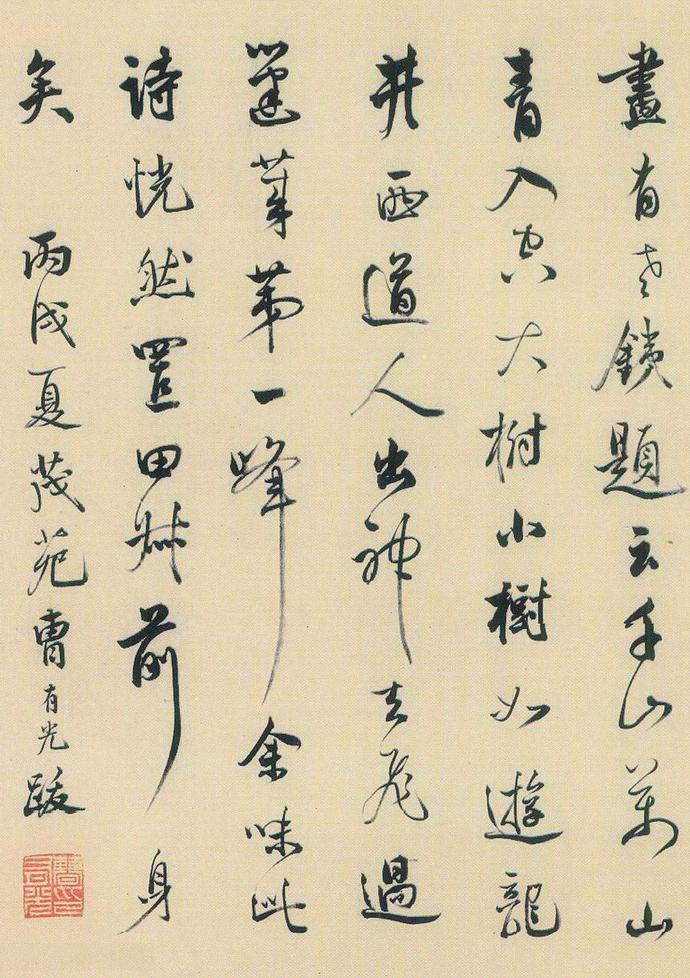 畫有老鐵題云千山萬山
青入空大樹小樹如遊龍
井西道人出神去飛過
蓬萊第一峰余味此
詩恍然置田叔前身
矣 丙戌夏茂苑曹有光跋